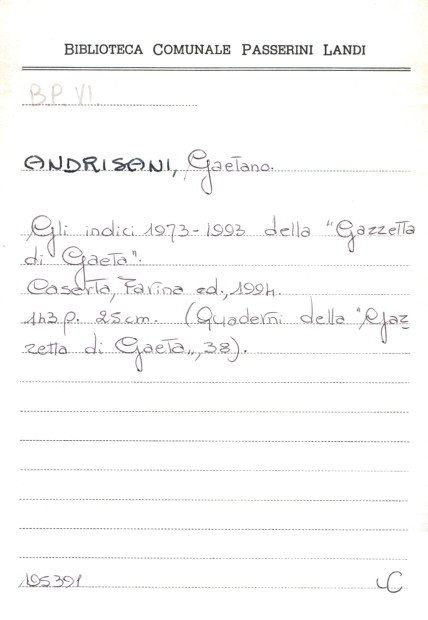 BIBLIOTECA COMUNALE PASSERINI LANDI
B.P. VI.
ANDRISANI, Gaetano.
Gli indici 1973-1993 della "Gazzetta
di Gaeta".
Caserta, Farina ed., 1994.
143 p. 25 cm. (Quaderni della "Gaz=
zetta di Gaeta", 38).
195391